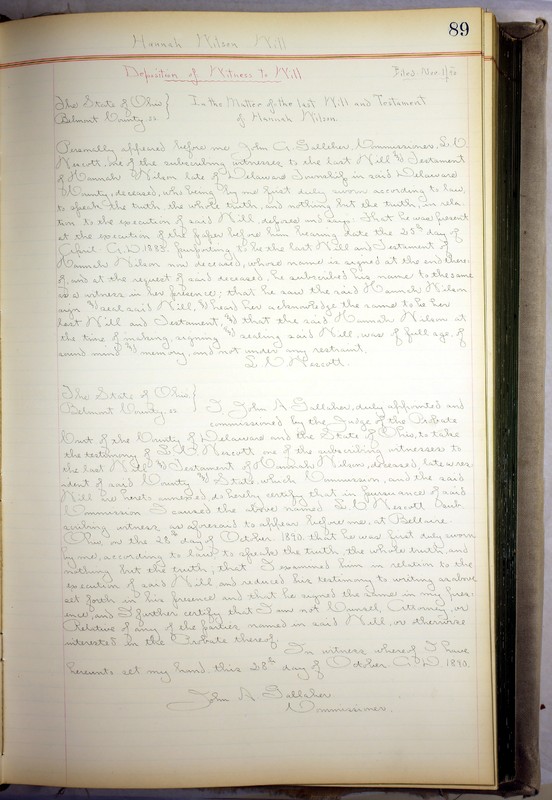 89
Hannah Wilson Will
Deposition of Witness to Will Filed Nov. 1/90
The State of Ohio } In the Matter of the last Will and Testament
Belmont County. ss of Hannah Wilson.
Personally appeared before me John A. Gallaher, Commissioner, L. W.
Wescott, one of the subscribing witnesses to the last Will & Testament
of Hannah Wilson late of Delaware Township in said Delaware
County, deceased, who being by me first duly sworn according to law,
to speak the truth the whole truth, and nothing but the truth, in rela-
tion to the execution of said Will, depose and say: That he was present
at the execution of the paper before him bearing date the 25th day of
April A.D. purporting to be the last Will and Testament of
Hannah Wilson now deceased, whose name is signed at the end there-
of, and at the request of said deceased, he subscribed his name to the same
as a witness in her presence; that he saw the said Hannah Wilson
sign & seal said Will, & heard her acknowledge the same to be her
last Will and Testament, & that the said Hannah Wilson at
the time of making, signing & sealing said Will, was of full age, of
sound mind & memory, and not under any restraint.
L. W. Wescott.
The State of Ohio }
Belmont County. ss I, John A Gallaher, duly appointed and
commissioned by the Judge of the Probate
Court of the County of Delaware and the State of Ohio, to take
the testimony of L. W. Wescott one of the subscribing witnesses to
the last Will & Testament of Hannah Wilson, deceased, late a res-
ident of said County & State, which Commission, and the said
Will are hereto annexed do hereby certify that in pursuance of said
Commission I caused the above named L. W. Wescott sub-
scribing witness as aforesaid to appear before me, at Bellaire
Ohio, on the 28th day of October 1890. that he was first duly sworn
by me, according to law to speak the truth the whole truth, and
nothing but the truth, that I examined him in relation to the
execution of said Will and reduced his testimony to writing as above
set forth in his presence and that he signed the same in my pres-
ence, and I further certify that I am not Counsel, Attorney, or
Relative of any of the parties named in said Will, or otherwise
interested in the Probate thereof.
In witness whereof I have
hereunto set my hand this 28th day of October A. D. 1890.
John A Gallaher
Commissioner.